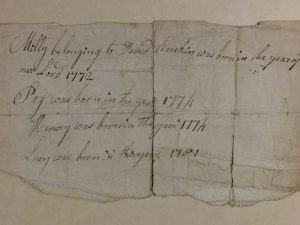 Milly belonging to David Rankin was born in the year of
our Lord 1772
Peg was born in the year 1774
was born in the year 1774
Lucy was born in the year